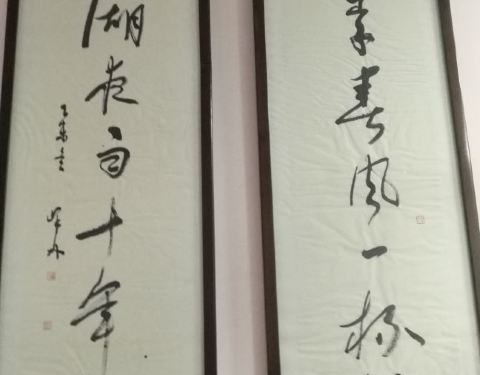 李春风一杯
湖夜雨十年